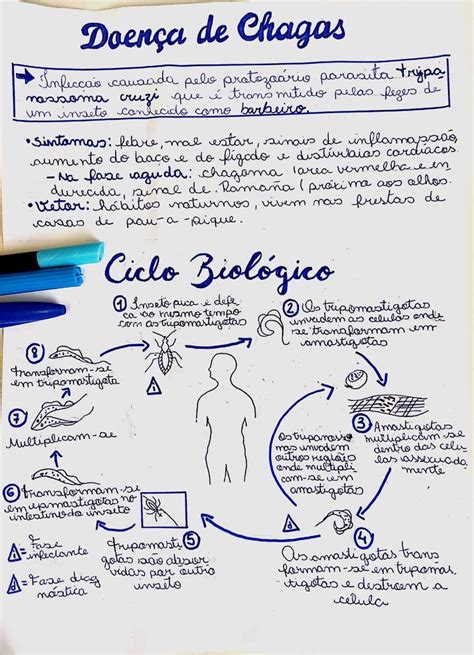 Doença de Chagas
Infecção causada pelo protozoário parasita trypa
nossoma cruzi que é transmitido pelas fezes de
um inseto conhecido como barbeiro.
• Sintomas: febre, mal estar, sinais de inflamassão,
aumento do baço e do fígado e distúrbios cardíacos.
- Na fase aguda: chagoma (area vermelha e en
durecida, sinal de Romaña (próximo aos olhos.
• Vetor: hábitos noturnos, vivem nas frestas de
casas de pau-a-pique.
Ciclo Biológico
1 Inseto pica e defe
ca ao mesmo tempo
com as tripomastigotas
i
2 Os tripomastigotas
invadem as celulas onde
se transformam em
amastigotas
3 Amastigotas
multiplicam-se
dentro das célu
las assexuada
mente
4
As amastigotas trans
formam-se em tripomas
tigotas e destroem a
celula
d
Os tripanosso
mas invadem
outros regiões
onde multipli
cam-se em
amastigotas
tripomasti 5
gotas são absor
vidas por outro
inseto
6 transformam-se
em epimastigotas no
intestino do inseto
7
Multiplicam-se
8
transformam-se
em tripomastigota
i = Fase
infectante
d = Fase diag
nóstica